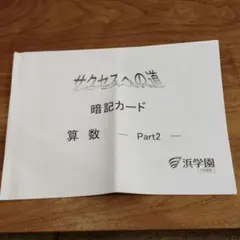 サクセスへの道
暗記カード
算数 ― Part2 ―
浜学園